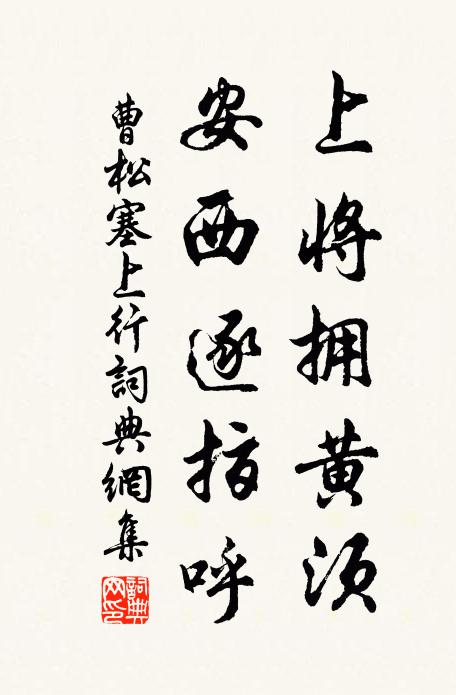 上将拥黄须
安西逐指呼
曹松塞上行詞典網集
詞典网印